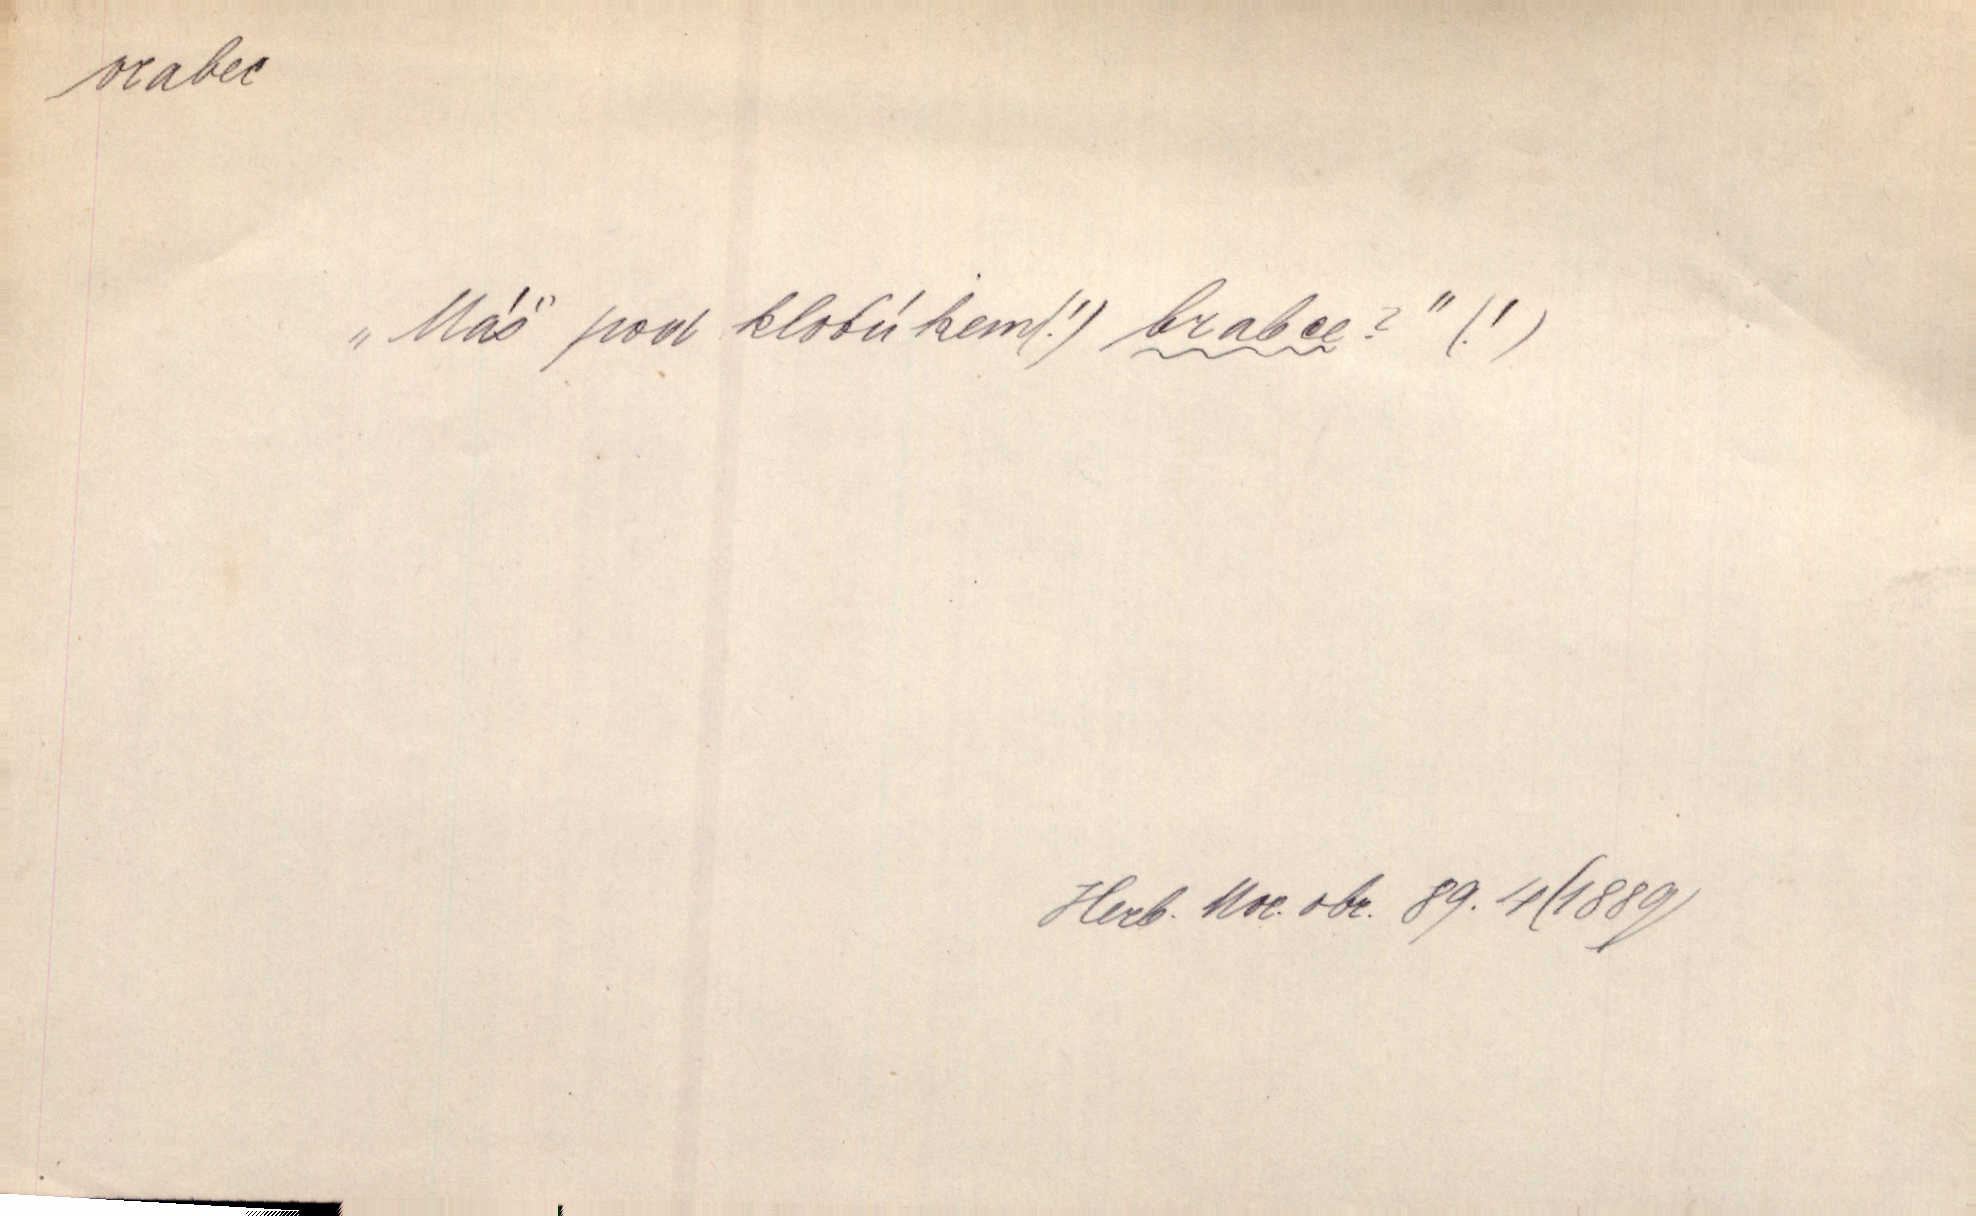 vrabec
„Máš pod klobúkem(!) brabce?" (!)
Herb. Mor. obr. 89. 4(1889)